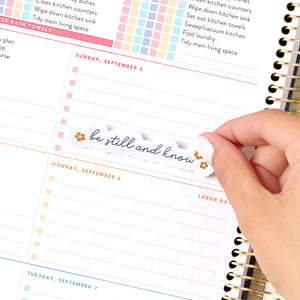 Clean kitchen counters
Wipe down kitchen sink
Tidy main living space
dishes
Clean kitchen counters
Wipe down kitchen sink
Set out kitchen towels
Sweep/vacuum kitchen
Fold laundry
Tidy main living space
BATH TOWELS
plan
SUNDAY, SEPTEMBER 5
be still and know
MONDAY, SEPTEMBER 6
LABOR DA
TUESDAY, SEPTEMBER 7